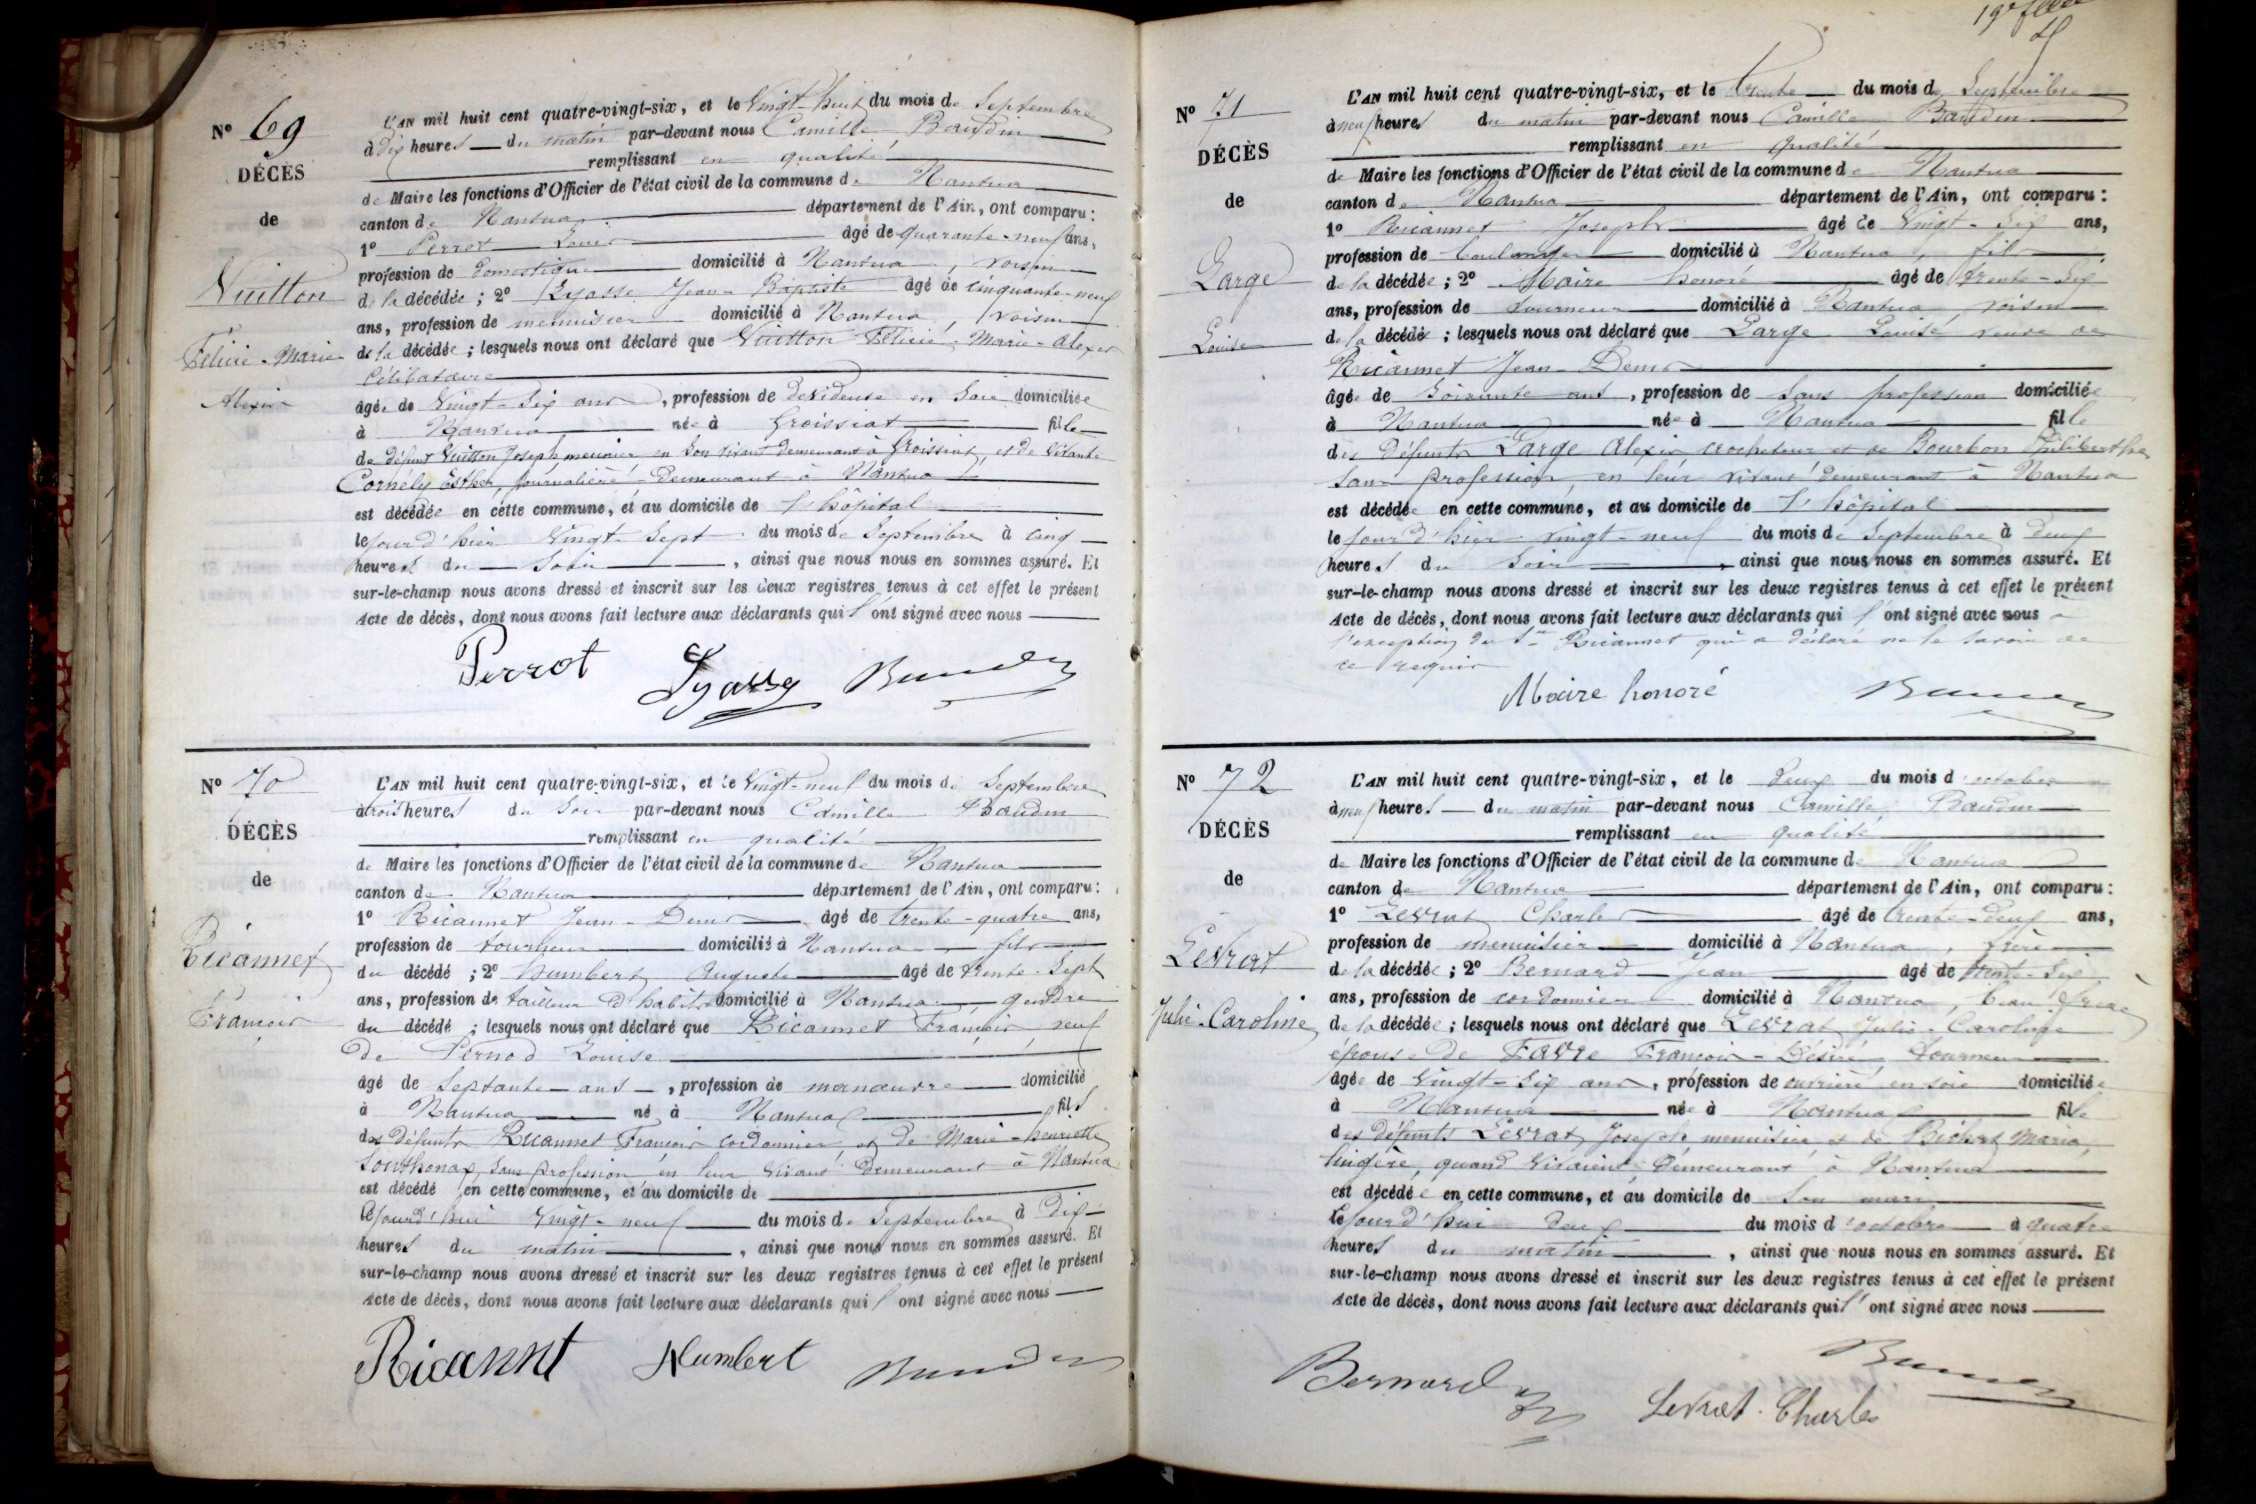 N° 69
DÉCÈS
de
Vuitton
Félicie-Marie
Alexis
L'AN mil huit cent quatre-vingt-six, et le Vingt-huit du mois de Septembre
à dix heures du matin par-devant nous Camille Baudin
remplissant en qualité
de Maire les fonctions d'Officier de l'état civil de la commune de Nantua
canton de Nantua département de l'Ain, ont comparu :
1° Perrot Louis âgé de quarante-neuf ans,
profession de domestique domicilié à Nantua, voisin
de la décédée ; 2° Lyasse Jean-Baptiste âgé de cinquante-neuf
ans, profession de menuisier domicilié à Nantua, voisin
de la décédée ; lesquels nous ont déclaré que Vuitton Félicie-Marie-Alexis
Célibataire
âgée de Vingt-Six ans, profession de devideuse en Soie domiciliée
à Nantua née à Groissiat fille
de défunt Vuitton Joseph meunier en Son vivant demeurant à Groissiat, et de vivante
Cornély Esther, journalière demeurant à Nantua
est décédée en cette commune, et au domicile de l'hôpital
le jour d'hier Vingt-Sept du mois de Septembre à cinq
heures du Soir, ainsi que nous nous en sommes assuré. Et
sur-le-champ nous avons dressé et inscrit sur les deux registres tenus à cet effet le présent
Acte de décès, dont nous avons fait lecture aux déclarants qui l'ont signé avec nous
Perrot Lyasse Baudin
N° 70
DÉCÈS
de
Ricannet
François
L'AN mil huit cent quatre-vingt-six, et le Vingt-neuf du mois de Septembre
à trois heures du Soir par-devant nous Camille Baudin
remplissant en qualité
de Maire les fonctions d'Officier de l'état civil de la commune de Nantua
canton de Nantua département de l'Ain, ont comparu :
1° Ricannet Jean-Denis âgé de trente-quatre ans,
profession de tourneur domicilié à Nantua, fils
du décédé ; 2° humbert Auguste âgé de trente-Sept
ans, profession de tailleur d'habits domicilié à Nantua gendre
du décédé ; lesquels nous ont déclaré que Ricannet François veuf
de Pernod Louise
âgé de Septante ans, profession de manœuvre domicilié
à Nantua né à Nantua fils
des défunts Ricannet François cordonnier, et de Marie-henriette
Southonax, Sans profession en leur vivant demeurant à Nantua
est décédé en cette commune, et au domicile de
le jourd'hui Vingt-neuf du mois de Septembre à dix
heures du matin, ainsi que nous nous en sommes assuré. Et
sur-le-champ nous avons dressé et inscrit sur les deux registres tenus à cet effet le présent
Acte de décès, dont nous avons fait lecture aux déclarants qui l'ont signé avec nous
Ricannet Humbert Baudin
N° 71
DÉCÈS
de
Large
Louise
L'AN mil huit cent quatre-vingt-six, et le trente du mois de Septembre
à neuf heures du matin par-devant nous Camille Baudin
remplissant en qualité
de Maire les fonctions d'Officier de l'état civil de la commune de Nantua
canton de Nantua département de l'Ain, ont comparu :
1° Ricannet Joseph âgé de Vingt-Six ans,
profession de boulanger domicilié à Nantua, fils
de la décédée ; 2° Maire honoré âgé de trente-Six
ans, profession de tourneur domicilié à Nantua, voisin
de la décédée ; lesquels nous ont déclaré que Large Louise, veuve de
Ricannet Jean-Denis
âgée de Soixante ans, profession de Sans profession domiciliée
à Nantua née à Nantua fille
des défunts Large Alexis crocheteur et de Bourbon Philiberthe
Sans profession, en leur vivant demeurant à Nantua
est décédée en cette commune, et au domicile de l'hôpital
le jour d'hier vingt-neuf du mois de Septembre à deux
heures du Soir, ainsi que nous nous en sommes assuré. Et
sur-le-champ nous avons dressé et inscrit sur les deux registres tenus à cet effet le présent
Acte de décès, dont nous avons fait lecture aux déclarants qui l'ont signé avec nous à
l'exception du Sr Ricannet qui a déclaré ne le Savoir de
ce requis
Maire honoré Baudin
N° 72
DÉCÈS
de
Levrat
Julie-Caroline
L'AN mil huit cent quatre-vingt-six, et le deux du mois d'octobre
à neuf heures du matin par-devant nous Camille Baudin
remplissant en qualité
de Maire les fonctions d'Officier de l'état civil de la commune de Nantua
canton de Nantua département de l'Ain, ont comparu :
1° Levrat Charles âgé de trente-deux ans,
profession de menuisier domicilié à Nantua, frère
de la décédée ; 2° Bernard Jean âgé de trente-Six
ans, profession de cordonnier domicilié à Nantua, beau-frère
de la décédée ; lesquels nous ont déclaré que Levrat Julie-Caroline
épouse de Favre François-Désiré, tourneur
âgée de Vingt-Six ans, profession de ouvrière en soie domiciliée
à Nantua née à Nantua fille
des défunts Levrat Joseph menuisier et de Bichat Maria,
lingère, quand vivaient demeurant à Nantua
est décédée en cette commune, et au domicile de Son mari
le jourd'hui deux du mois d'octobre à quatre
heures du matin, ainsi que nous nous en sommes assuré. Et
sur-le-champ nous avons dressé et inscrit sur les deux registres tenus à cet effet le présent
Acte de décès, dont nous avons fait lecture aux déclarants qui l'ont signé avec nous
Bernard Baudin
Levrat Charles